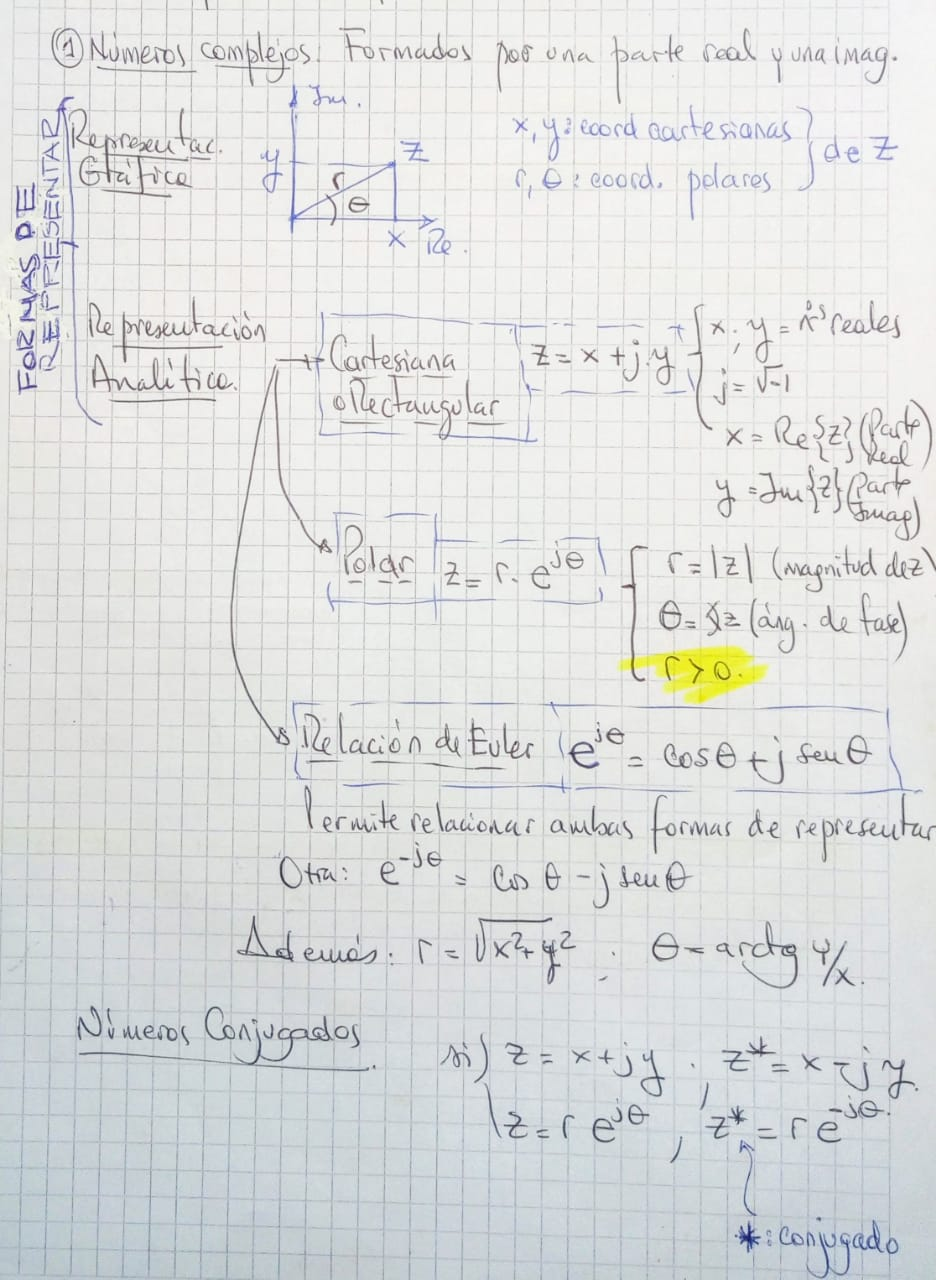 ① Números complejos. Formados por una parte real y una imag.
FORMAS DE
REPRESENTAR
Representac.
Gráfica
Im.
y
r
θ
Z
x Re.
x, y: coord cartesianas
r, θ: coord. polares
} de Z
Representación
Analítica.
Cartesiana
o Rectangular
z = x + j. y
x; y = nºs reales
j = √-1
x = Re{z} (Parte
Real)
y = Im{z} (Parte
Imag)
Polar
z = r. e^jθ
r = |z| (magnitud de z)
θ = ∢z (áng. de fase)
r > 0.
Relación de Euler e^jθ = cos θ + j sen θ
Permite relacionar ambas formas de representar
Otra: e^-jθ = cos θ - j sen θ
Además: r = √x²+y² ; θ = arctg y/x.
Números Conjugados.
si) z = x + jy ; z* = x - jy.
z = r e^jθ , z* = r e^-jθ.
*: conjugado